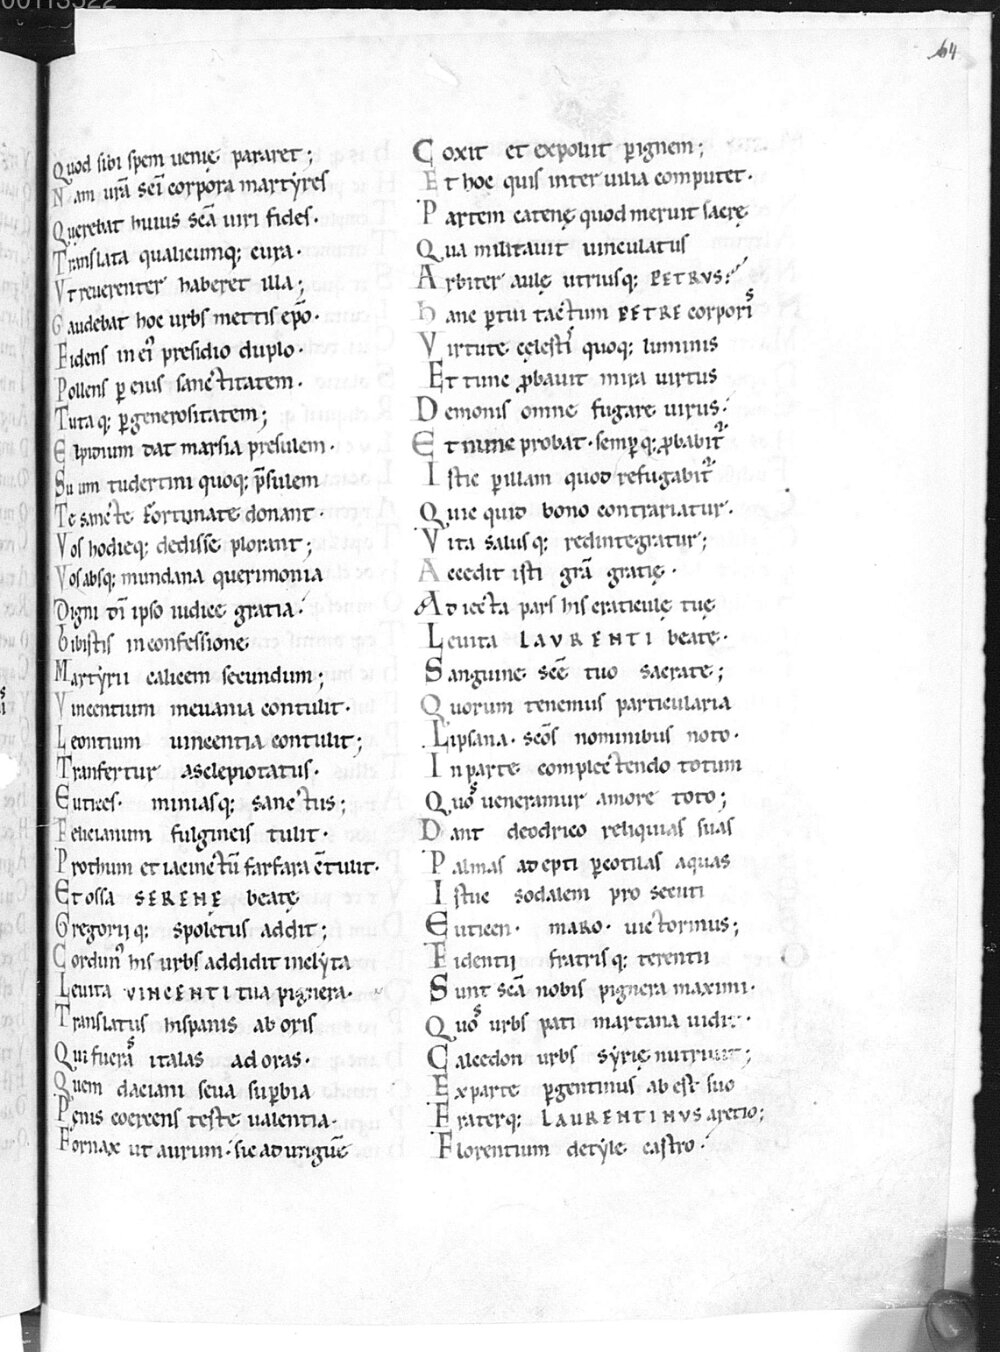 00113322
64
Quod sibi spem uenię pararet;
Nam urā scī corpora martyres
Querebat huius scā uiri fides.
Translata qualicumq; cura
Vt reuerenter haberet illa;
Gaudebat hoc urbs mettis epō.
Fidens in ei᷒ presidio duplo.
Pollens ꝑ eius sanctitatem.
Tutaq; ꝑ generositatem;
Elpidium dat marsia presulem.
Suum tudertini quoq; p̄sulem
Te sancte fortunate donant.
Vos hodieq; dedisse plorant;
Vos absq; mundana querimonia
Digni dī ipso iudice gratia.
Bibistis in confessione
Martyrii calicem secundum;
Vincentium meuania contulit.
Leontium uincentia contulit;
Tranfertur asclepiotatus.
Euticef. miniasq; sanctus;
Felicianum fulgineis tulit.
Prothum et iacinctū farfara c̄tulit.
Et ossa SERENE beatę
Gregorijq; spoletus addit;
Cordun᷒ his urbs addidit inclyta
Leuita VINCENTI tua pignera.
Translatus hispanis ab oris
Qui fueras italas ad oras.
Quem daciani seua suꝑbia
Penis coercens teste ualentia.
Fornax ut aurum. sic ad unguē
Coxit et expoluit ꝑ ignem;
Et hoc quis inter uilia computet.
Partem catenę quod meruit sacrę
Qua militauit uinculatus
Arbiter aulę utriusq; PETRVS?
Hanc ꝑ tui tactum PETRE corporis
Virtute cęlestis quoq; luminis
Et tunc ꝓbauit mira uirtus
Demonis omne fugare uirus.
Et nunc probat. semꝑq; ꝓbabit᷑
Istic ꝑ illam quod refugabit᷑
Quicquid bono contrariatur.
Vita salusq; redintegratur;
Accedit isti grā gratię.
Adiecta pars his craticulę tuę
Leuita LAVRENTI beate.
Sanguine scē tuo sacrate;
Quorum tenemus particularia
Lipsana. scōs nominibus noto.
In parte complectendo totum
Quos ueneramur amore toto;
Dant deodrico reliquias suas
Palmas adepti ꝑ cotilas aquas
Istuc sodalem pro secuti
Euticen. maro. uictorinus;
Fidentij fratrisq; terentii
Sunt scā nobis pignera maximi.
Quos urbs pati martana uidit.
Calcedon urbs syrię nutriuit;
Ex parte ꝑgentinus abest suo
Fraterq; LAURENTINVS aretio;
Florentium de tyle castro.